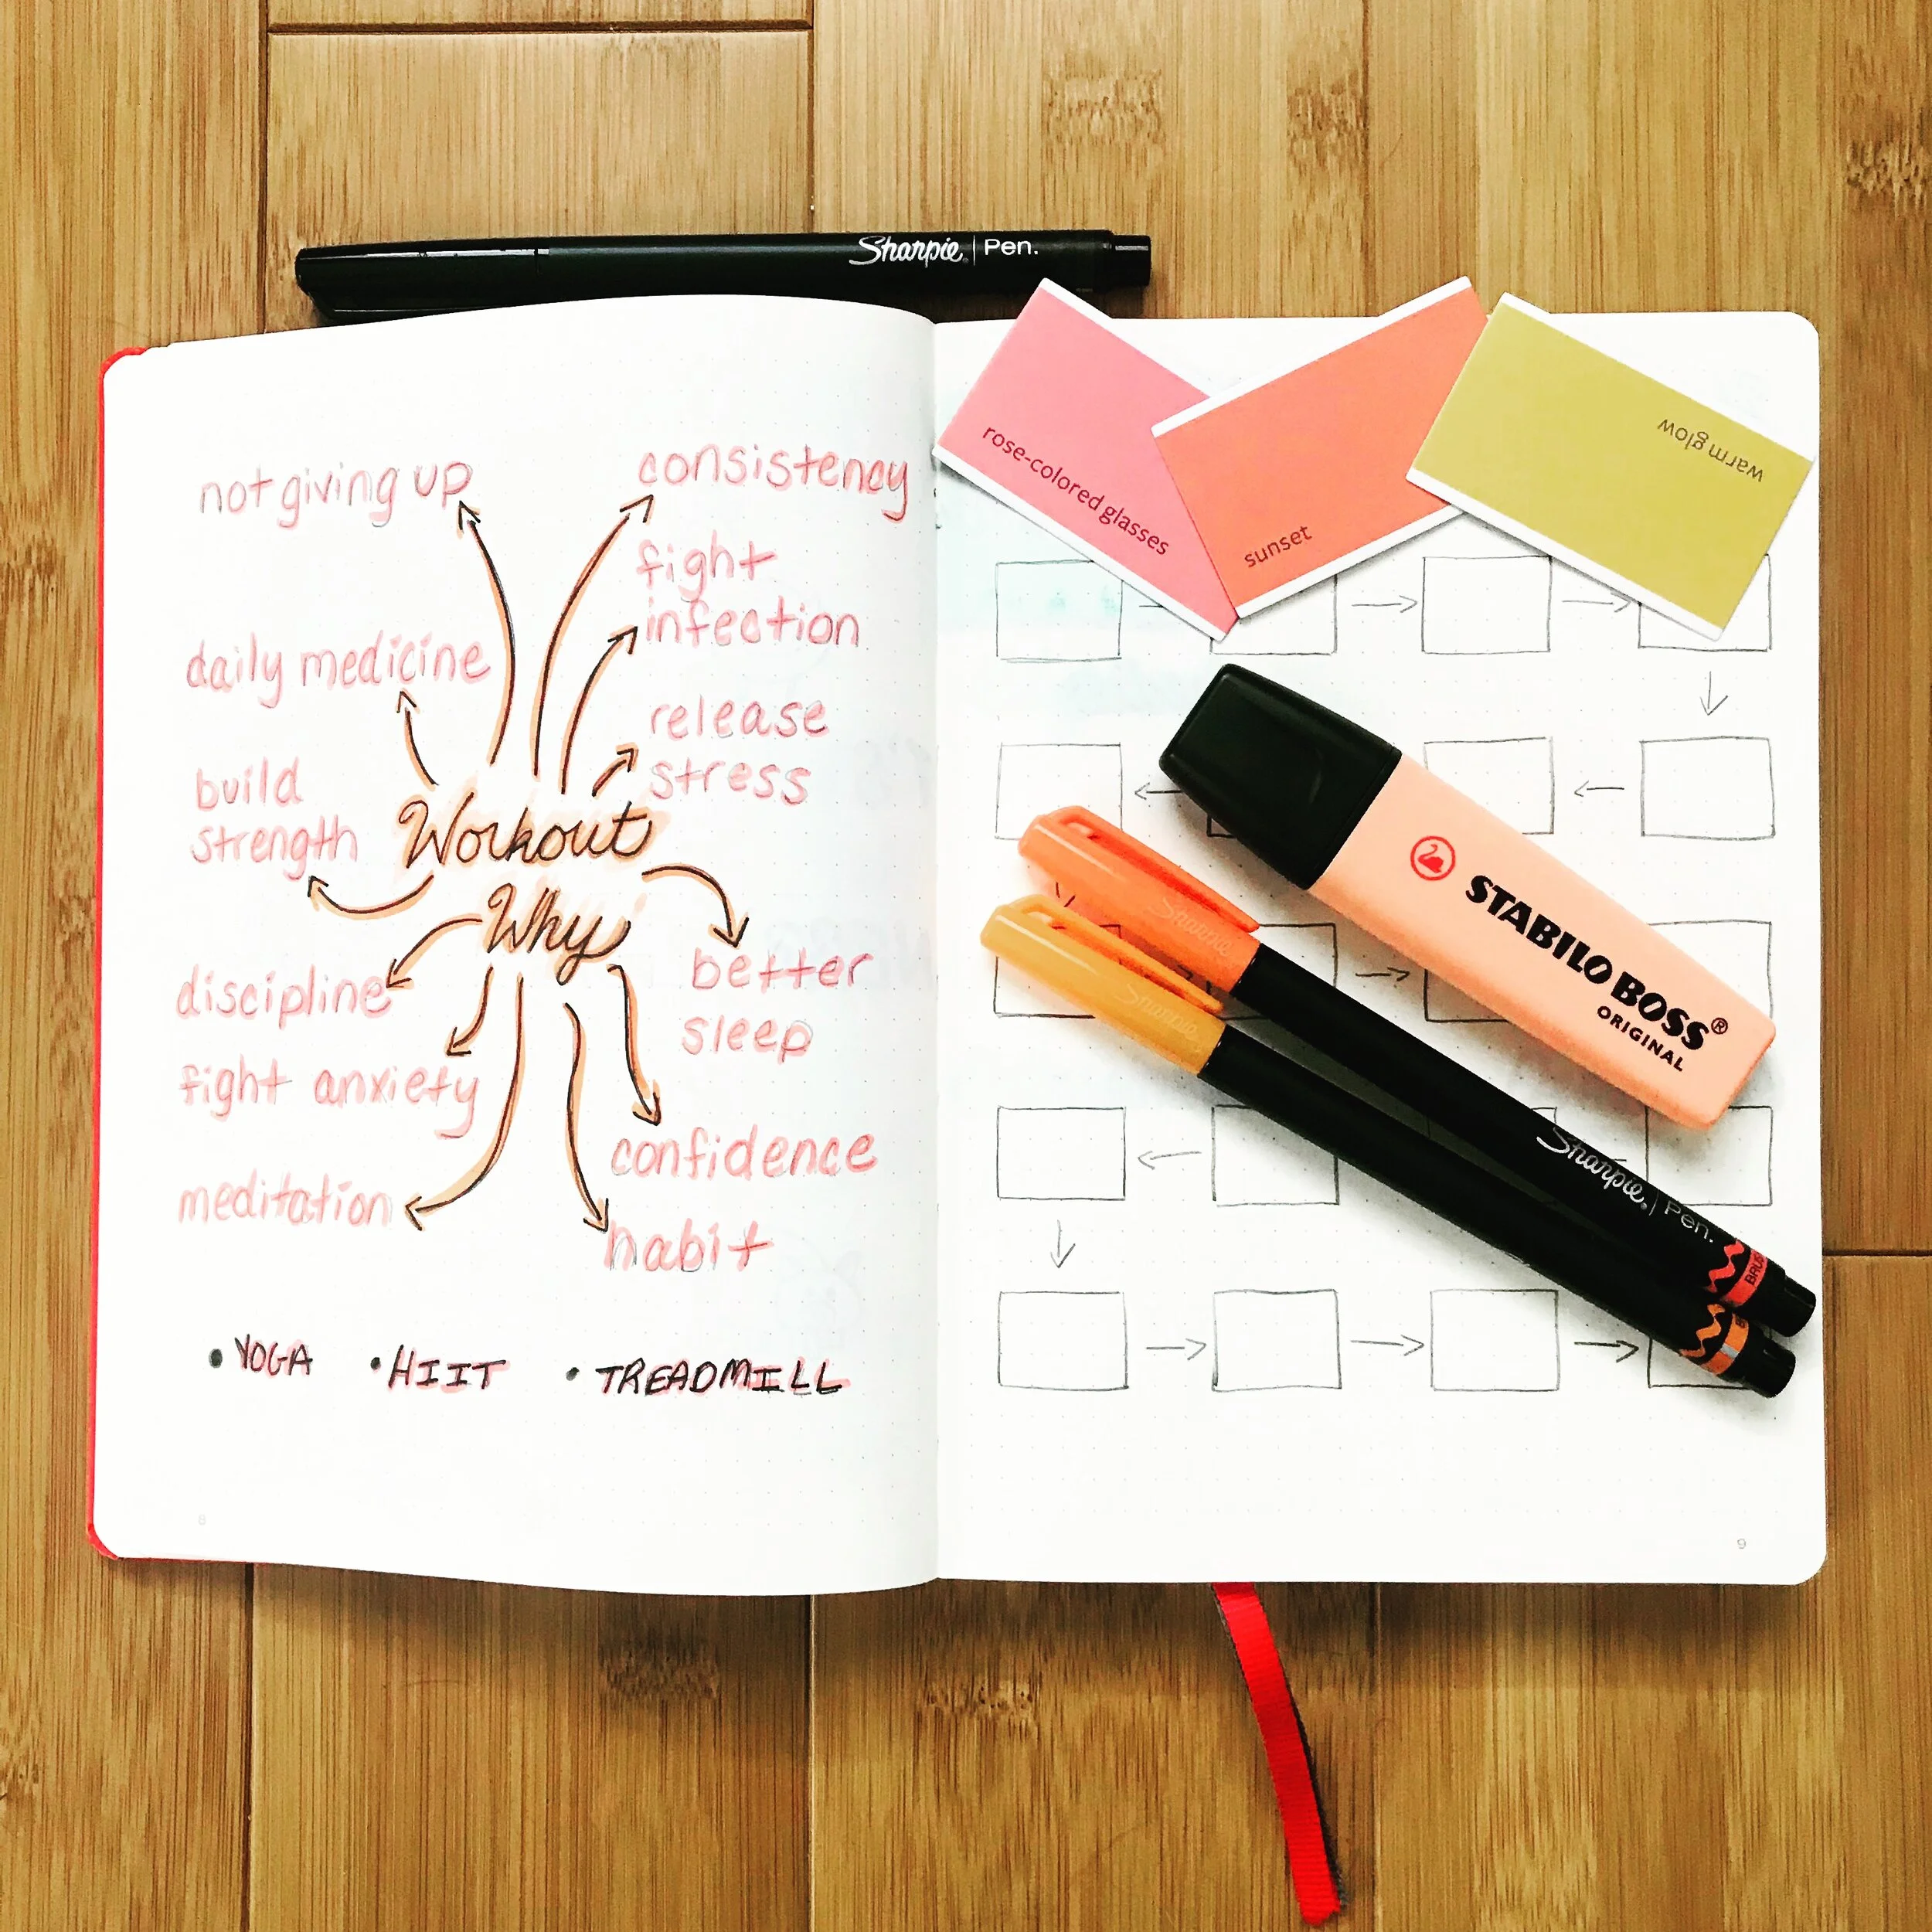 Sharpie | Pen.
not giving up
consistency
fight
infection
daily medicine
release
stress
build
strength
Workout
Why
better
sleep
discipline
fight anxiety
confidence
meditation
habit
• YOGA • HIIT • TREADMILL
8
rose-colored glasses
sunset
warm glow
STABILO BOSS®
ORIGINAL
Sharpie
Sharpie
Sharpie | Pen.
9